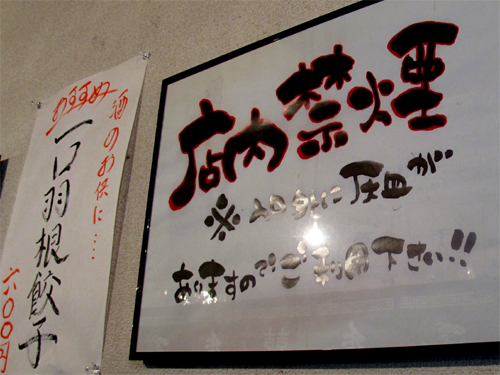 店内禁煙
※入口外に灰皿が
ありますのでご利用下さい!!
おすすめ
酒のお供に…
一口羽根餃子
六〇〇円